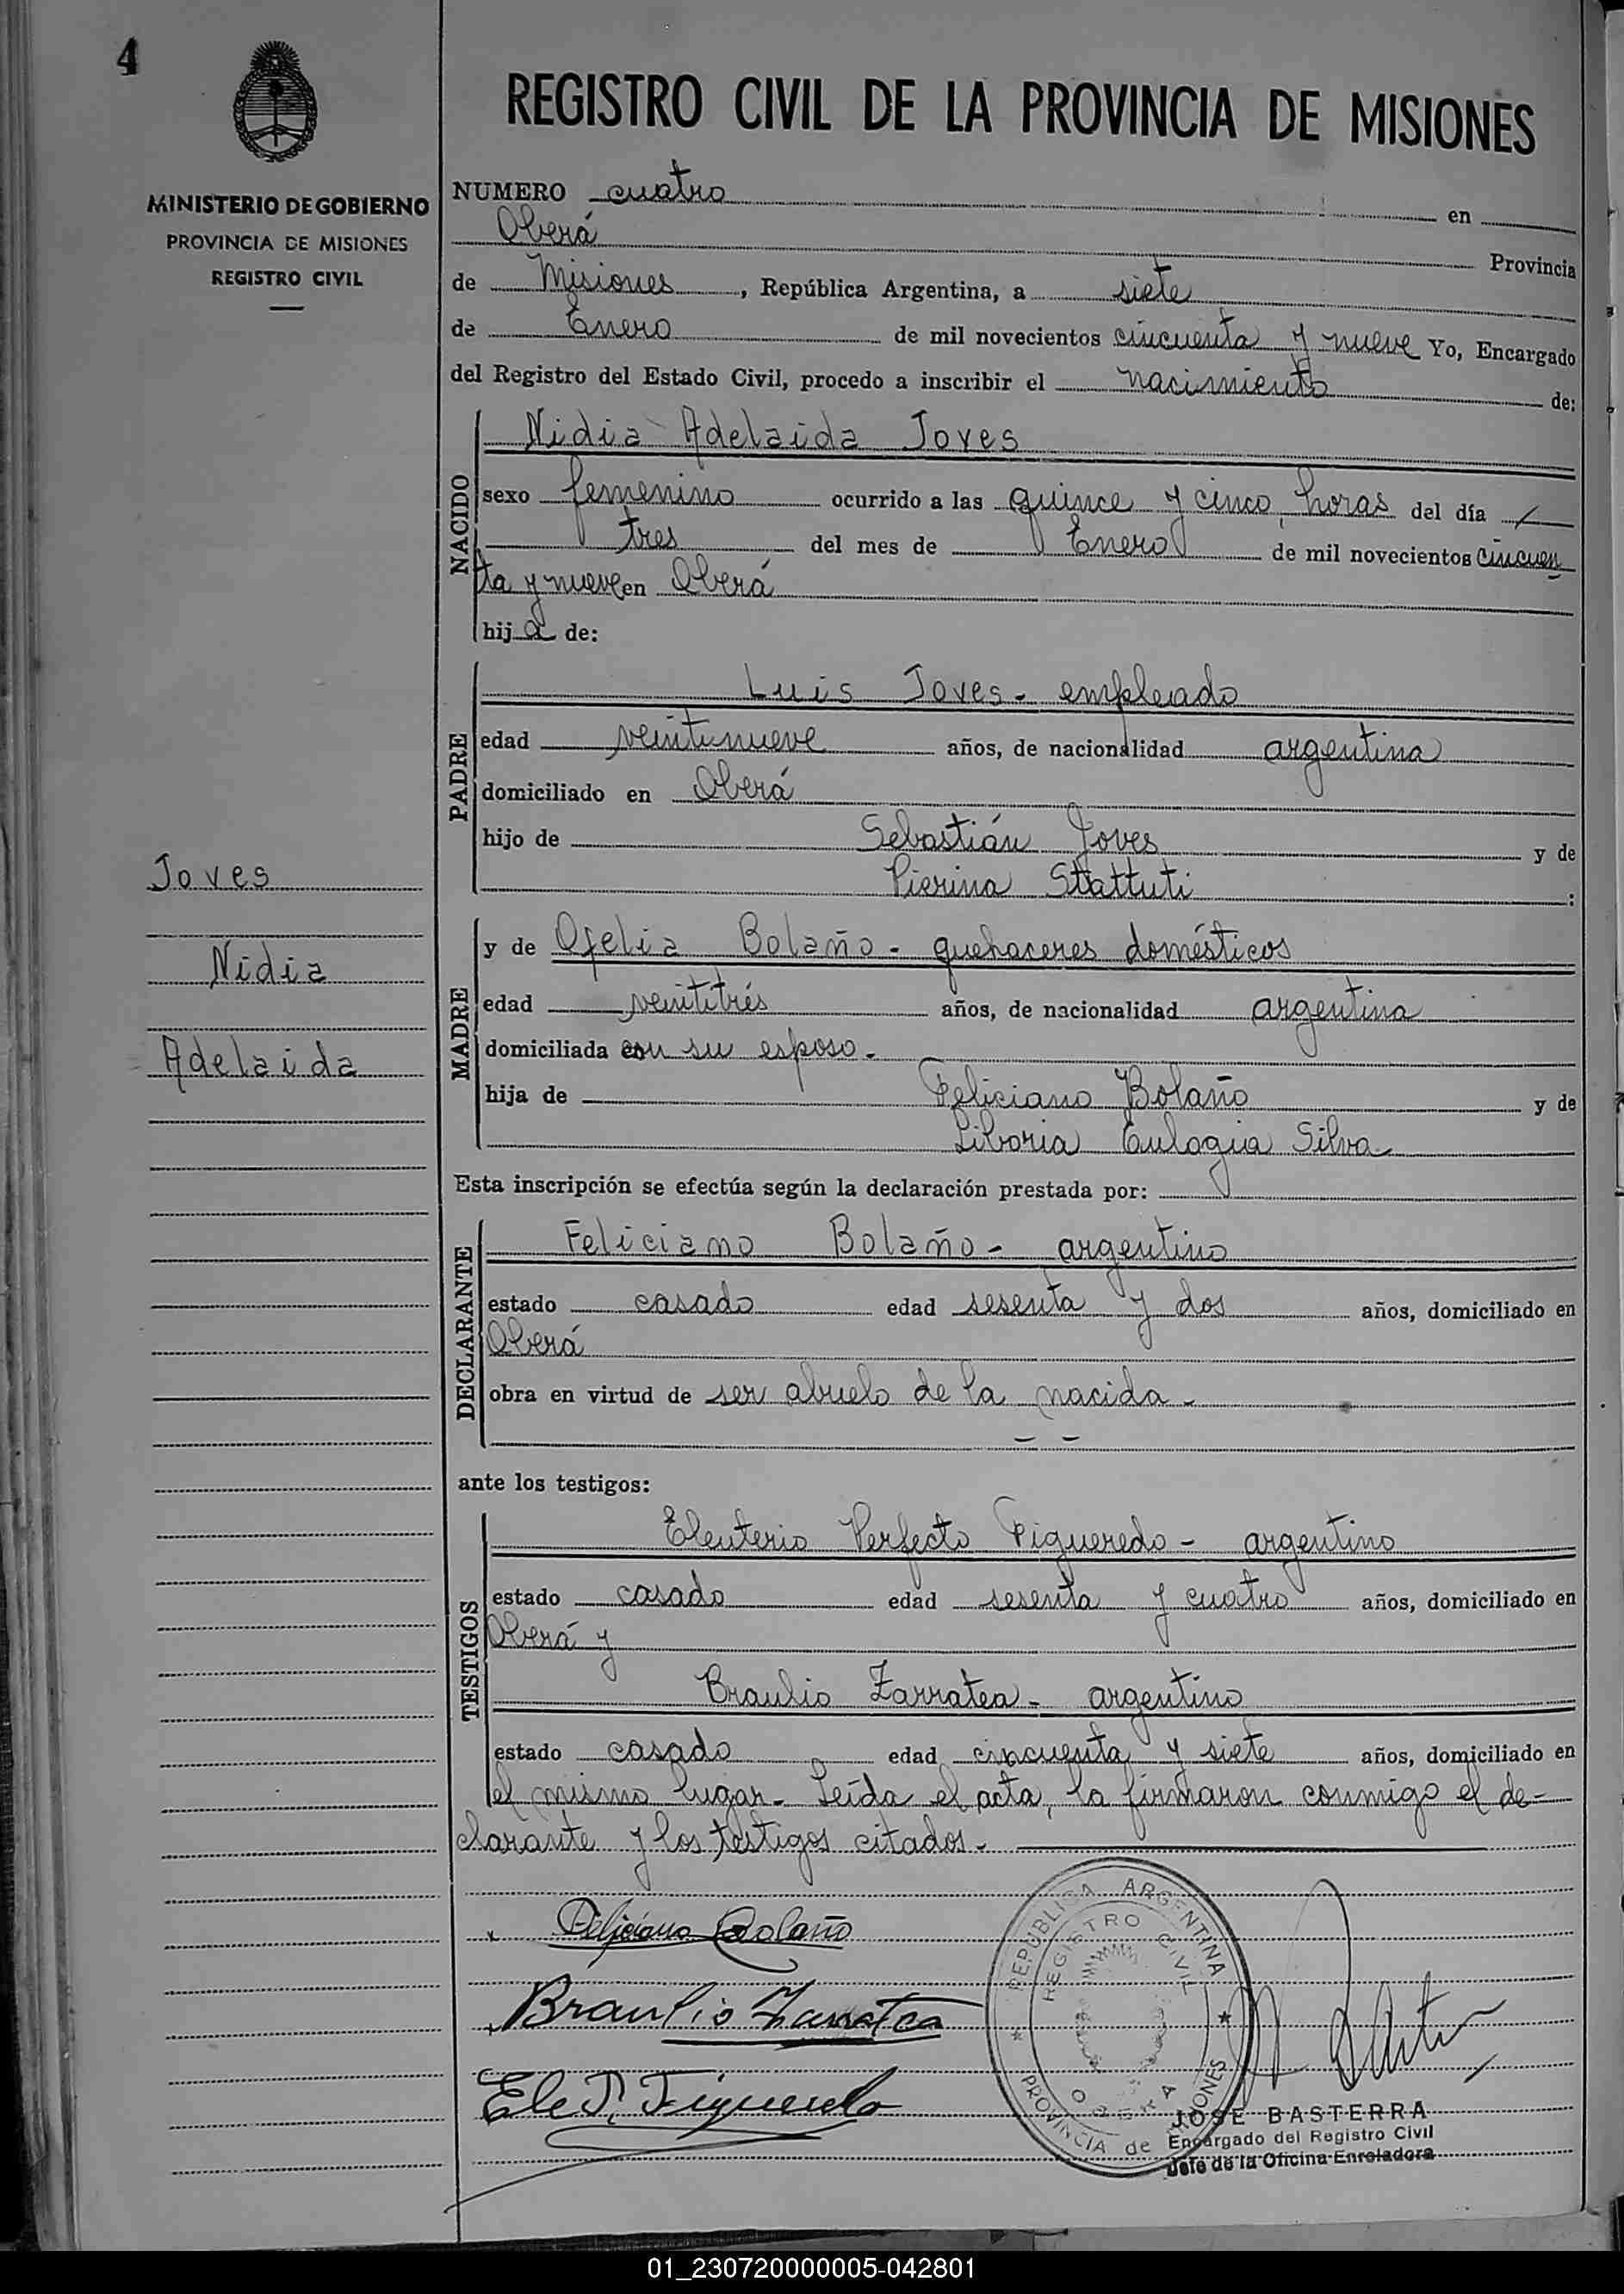 4
MINISTERIO DE GOBIERNO
PROVINCIA DE MISIONES
REGISTRO CIVIL
REGISTRO CIVIL DE LA PROVINCIA DE MISIONES
NUMERO cuatro en
Oberá Provincia
de Misiones, República Argentina, a siete
de Enero de mil novecientos cincuenta y nueve Yo, Encargado
del Registro del Estado Civil, procedo a inscribir el nacimiento de:
NACIDO
Nidia Adelaida Joves
sexo femenino ocurrido a las quince y cinco horas del día
tres del mes de Enero de mil novecientos cincuen
ta y nueve en Oberá
hija de:
PADRE
Luis Joves - empleado
edad veintinueve años, de nacionalidad argentina
domiciliado en Oberá
hijo de Sebastián Joves y de
Pierina Stattuti :
Joves
Nidia
Adelaida
MADRE
y de Ofelia Bolaño - quehaceres domésticos
edad veintitrés años, de nacionalidad argentina
domiciliada con su esposo.
hija de Feliciano Bolaño y de
Liboria Eulogia Silva
Esta inscripción se efectúa según la declaración prestada por:
DECLARANTE
Feliciano Bolaño - argentino
estado casado edad sesenta y dos años, domiciliado en
Oberá
obra en virtud de ser abuelo de la nacida -
- -
ante los testigos:
TESTIGOS
Eleuterio Perfecto Figueredo - argentino
estado casado edad sesenta y cuatro años, domiciliado en
Oberá y
Braulio Zarratea - argentino
estado casado edad cincuenta y siete años, domiciliado en
el mismo lugar - Leída el acta, la firmaron conmigo el de-
clarante y los testigos citados -
Feliciano Bolaño
Braulio Zarratea
Ele P. Figueredo
REPUBLICA ARGENTINA
REGISTRO CIVIL
OBERA
PROVINCIA de MISIONES
JOSE BASTERRA
Encargado del Registro Civil
Jefe de la Oficina Enroladora
01_230720000005-042801